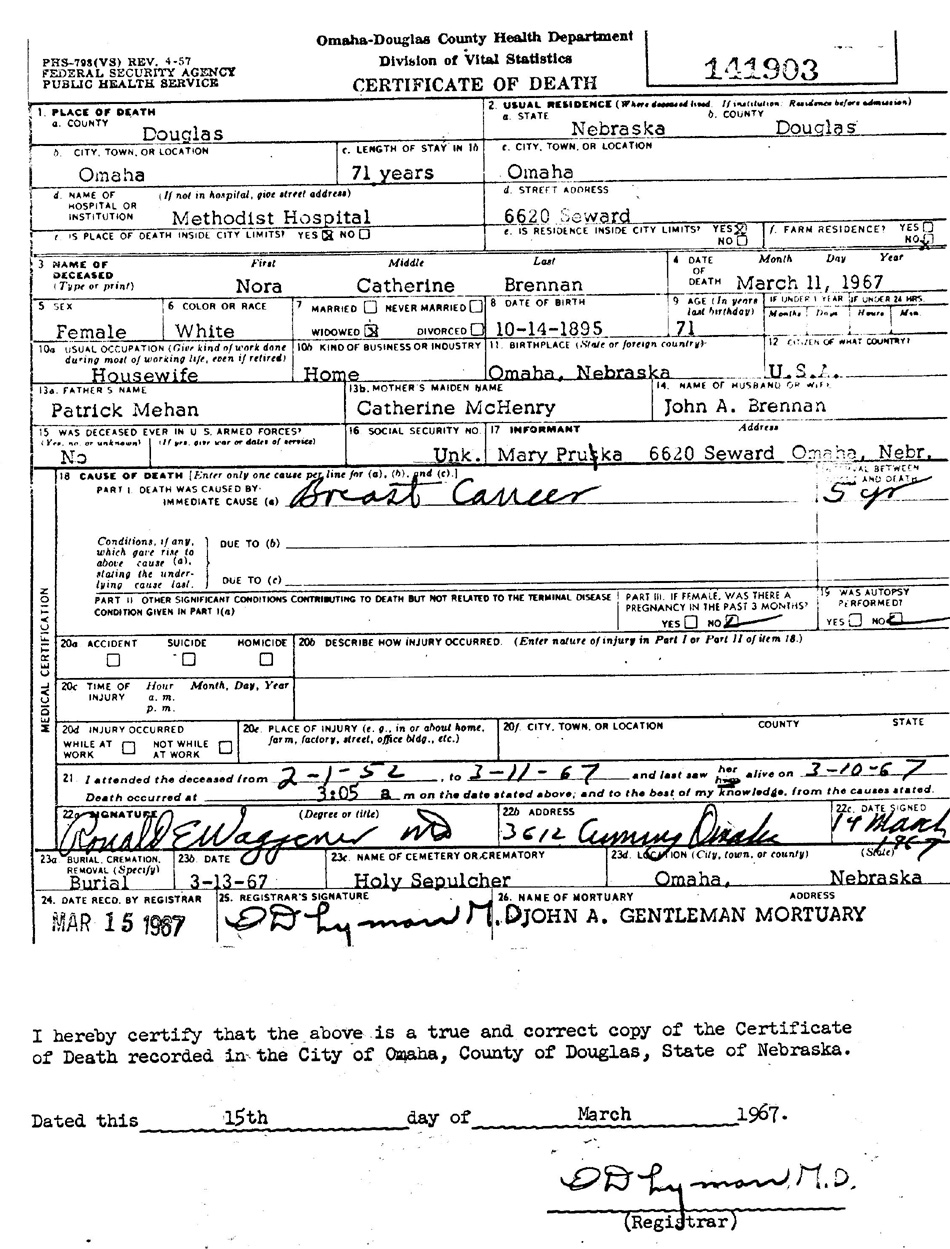 Omaha-Douglas County Health Department
Division of Vital Statistics
CERTIFICATE OF DEATH
PHS-798(VS) REV. 4-57
FEDERAL SECURITY AGENCY
PUBLIC HEALTH SERVICE
141903
1. PLACE OF DEATH
a. COUNTY
Douglas
2. USUAL RESIDENCE (Where deceased lived. If institution: Residence before admission)
a. STATE
Nebraska
b. COUNTY
Douglas
b. CITY, TOWN, OR LOCATION
Omaha
c. LENGTH OF STAY IN 1b
71 years
c. CITY, TOWN, OR LOCATION
Omaha
d. NAME OF HOSPITAL OR INSTITUTION (If not in hospital, give street address)
Methodist Hospital
d. STREET ADDRESS
6620 Seward
e. IS PLACE OF DEATH INSIDE CITY LIMITS? YES ☒ NO ☐
e. IS RESIDENCE INSIDE CITY LIMITS? YES ☒ NO ☐
f. FARM RESIDENCE? YES ☐ NO ☒
3 NAME OF DECEASED (Type or print)
First Middle Last
Nora Catherine Brennan
4 DATE OF DEATH
Month Day Year
March 11, 1967
5 SEX
Female
6 COLOR OR RACE
White
7 MARRIED ☐ NEVER MARRIED ☐
WIDOWED ☒ DIVORCED ☐
8 DATE OF BIRTH
10-14-1895
9 AGE (In years last birthday)
71
IF UNDER 1 YEAR IF UNDER 24 HRS.
Months Days Hours Min.
10a USUAL OCCUPATION (Give kind of work done during most of working life, even if retired)
Housewife
10b KIND OF BUSINESS OR INDUSTRY
Home
11. BIRTHPLACE (State or foreign country)
Omaha, Nebraska
12 CITIZEN OF WHAT COUNTRY?
U.S.A.
13a. FATHER'S NAME
Patrick Mehan
13b. MOTHER'S MAIDEN NAME
Catherine McHenry
14. NAME OF HUSBAND OR WIFE
John A. Brennan
15 WAS DECEASED EVER IN U.S. ARMED FORCES?
(Yes, no, or unknown) (If yes, give war or dates of service)
No
16 SOCIAL SECURITY NO.
Unk.
17 INFORMANT Address
Mary Pruška 6620 Seward Omaha, Nebr.
MEDICAL CERTIFICATION
18 CAUSE OF DEATH [Enter only one cause per line for (a), (b), and (c).]
PART I. DEATH WAS CAUSED BY:
IMMEDIATE CAUSE (a) Breast Cancer
BETWEEN
AND DEATH
5 yr
Conditions, if any, which gave rise to above cause (a), stating the underlying cause last.
DUE TO (b)
DUE TO (c)
PART II OTHER SIGNIFICANT CONDITIONS CONTRIBUTING TO DEATH BUT NOT RELATED TO THE TERMINAL DISEASE CONDITION GIVEN IN PART I(a)
PART III. IF FEMALE, WAS THERE A PREGNANCY IN THE PAST 3 MONTHS?
YES ☐ NO ☑
19 WAS AUTOPSY PERFORMED?
YES ☐ NO ☑
20a ACCIDENT SUICIDE HOMICIDE
☐ ☐ ☐
20b DESCRIBE HOW INJURY OCCURRED. (Enter nature of injury in Part I or Part II of item 18.)
20c TIME OF INJURY
Hour Month, Day, Year
a. m.
p. m.
20d INJURY OCCURRED
WHILE AT WORK ☐ NOT WHILE AT WORK ☐
20e. PLACE OF INJURY (e. g., in or about home, farm, factory, street, office bldg., etc.)
20f. CITY, TOWN, OR LOCATION COUNTY STATE
21 I attended the deceased from 2-1-52, to 3-11-67 and last saw her alive on 3-10-67
Death occurred at 3:05 a m on the date stated above; and to the best of my knowledge, from the causes stated.
22a SIGNATURE (Degree or title)
Ronald E Waggener MD
22b ADDRESS
3612 Cuming Omaha
22c. DATE SIGNED
14 March 1967
23a BURIAL, CREMATION, REMOVAL (Specify)
Burial
23b. DATE
3-13-67
23c. NAME OF CEMETERY OR CREMATORY
Holy Sepulcher
23d. LOCATION (City, town, or county) (State)
Omaha, Nebraska
24. DATE RECD. BY REGISTRAR
MAR 15 1967
25. REGISTRAR'S SIGNATURE
E D Lyman M.D
26. NAME OF MORTUARY ADDRESS
JOHN A. GENTLEMAN MORTUARY
I hereby certify that the above is a true and correct copy of the Certificate
of Death recorded in the City of Omaha, County of Douglas, State of Nebraska.
Dated this 15th day of March 1967.
E D Lyman, M.D.
(Registrar)